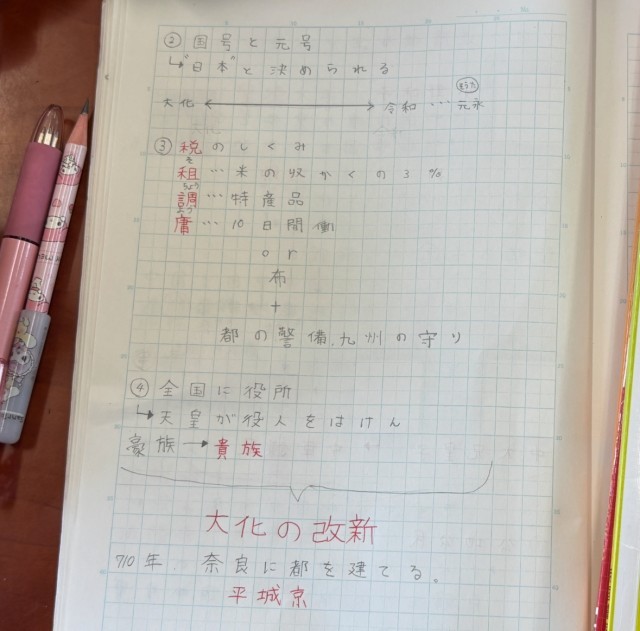 ② 国号と元号
↳"日本"と決められる
大化 ←→ 令和…元永
③ 税のしくみ
そ
租…米の収かくの3%
ちょう
調…特産品
よう
庸…10日間働
or
布
+
都の警備、九州の守り
④ 全国に役所
↳天皇が役人をはけん
豪族→貴族
大化の改新
710年、奈良に都を建てる。
平城京